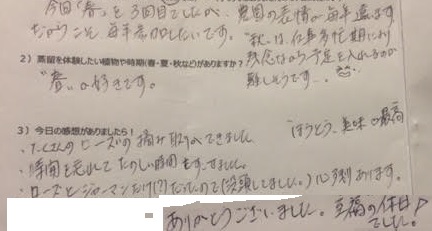 今回「春」を3回目でしたが、農園の表情が毎年違います
だからこそ毎年参加したいです。
2）蒸留を体験したい植物や時期(春・夏・秋など)がありますか？
"秋"は、仕事多忙期により
残念ながら予定を入れるのが
難しそうです…
"春"が好きです。
3）今日の感想がありましたら！
ほうとう、美味♡最高
・たくさんのローズの摘み取りができました
・時間を忘れてたのしい時間をすごせました。
・ローズとジャーマンだけ(?)だったので(没頭しました。)心残りあります。
ありがとうございました。至福の休日
でした！